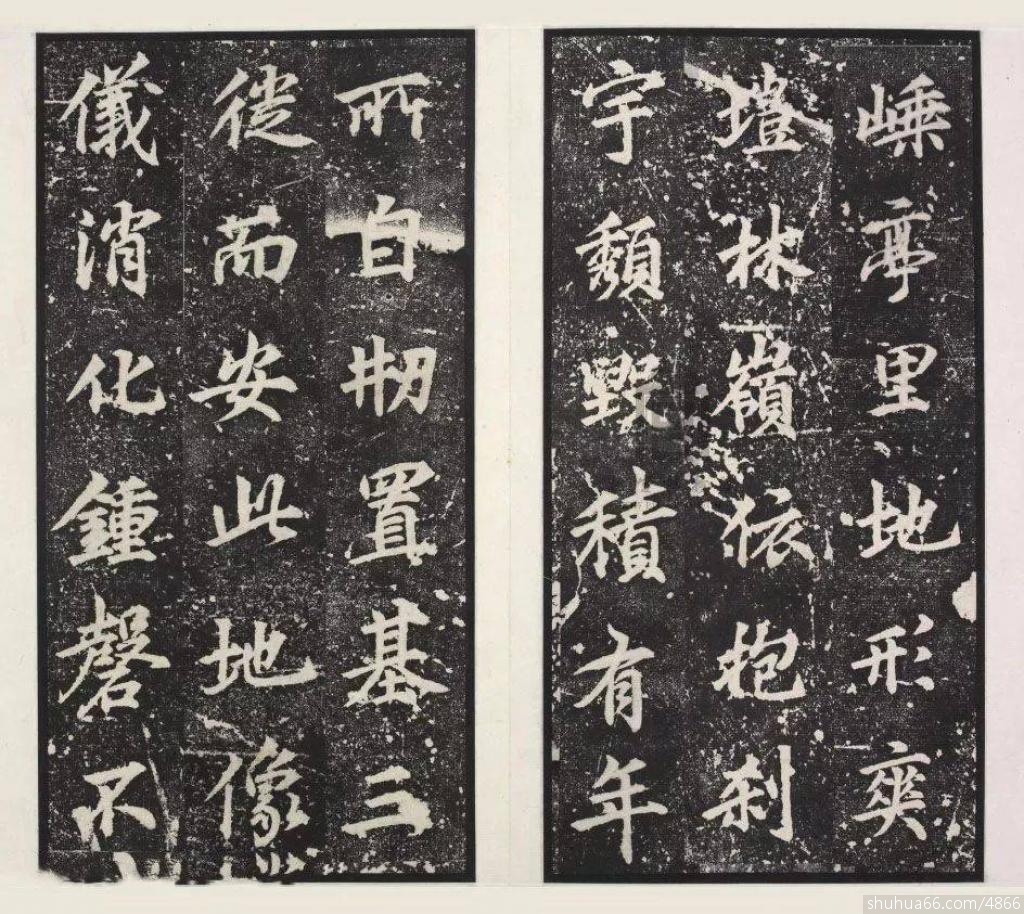 嵊亭里地形爽
塏林嶺依抱刹
宇頹毀積有年
所自刱置基三
徙而安此地像
儀消化鍾磬不
shuhua66.com/4866